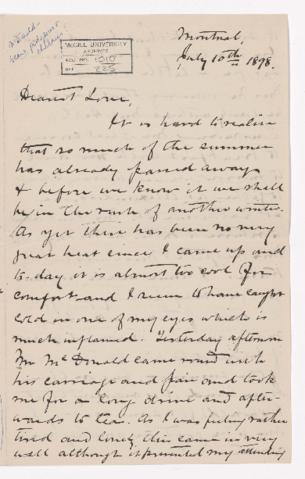 McGILL UNIVERSITY
ARCHIVES
ACC. NO. 1010
REF. 225
Montreal,
July 10th 1898.
Dearest Love,
It is hard to realise
that so much of the summer
has already passed away
& before we know it we shall
be in the rush of another winter
As yet there has been no very
great heat since I came up and
to-day it is almost too cool for
comfort and I seem to have caught
cold in one of my eyes which is
much inflamed. Yesterday afternoon
Mr McDonald came round with
his carriage and pair and took
me for a long drive and after-
wards to tea. As I was feeling rather
tired and lonely this came in very
well although it prevented my attending